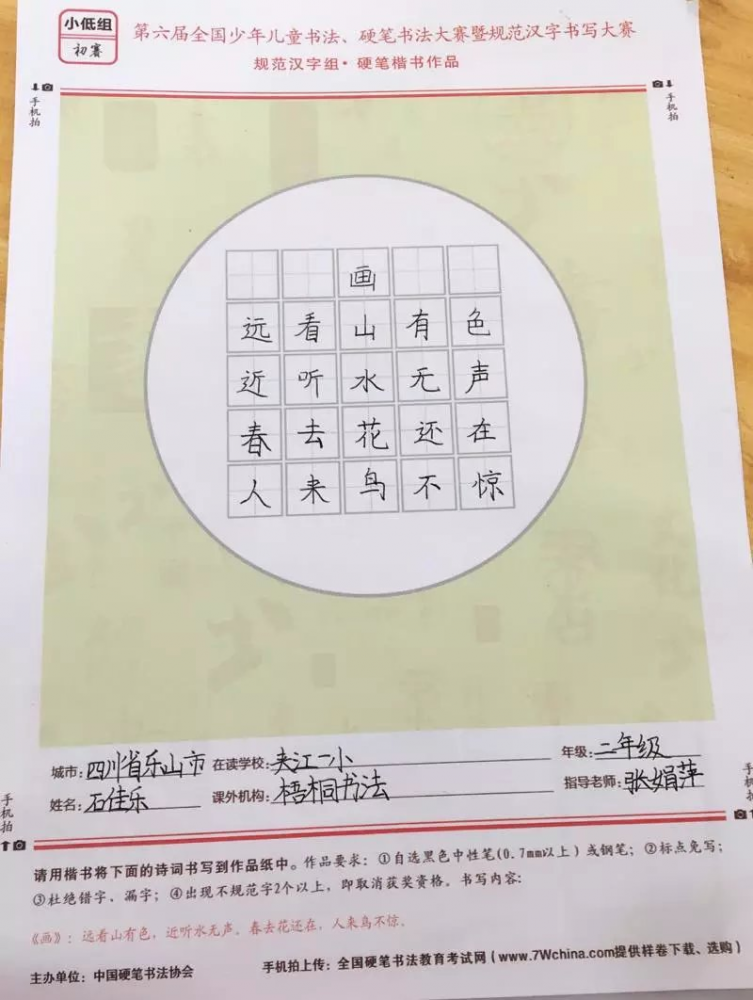 小低组
初赛
第六届全国少年儿童书法、硬笔书法大赛暨规范汉字书写大赛
规范汉字组·硬笔楷书作品
手机拍
手机拍
画
远看山有色
近听水无声
春去花还在
人来鸟不惊
城市:四川省乐山市 在读学校:夹江一小 年级:二年级
姓名:石佳乐 课外机构:梧桐书法 指导老师:张娟萍
手机拍
手机拍
请用楷书将下面的诗词书写到作品纸中。作品要求:①自选黑色中性笔(0.7mm以上)或钢笔;②标点免写;
③杜绝错字、漏字;④出现不规范字2个以上,即取消获奖资格。书写内容:
《画》:远看山有色,近听水无声。春去花还在,人来鸟不惊。
主办单位:中国硬笔书法协会 手机拍上传:全国硬笔书法教育考试网(www.7Wchina.com提供样卷下载、选购)